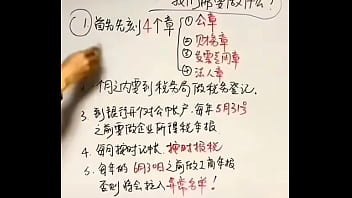 我们都要做什么?
① 首先先刻4个章
① 公章
② 财务章
③ 发票专用章
④ 法人章
个月之内要到税务局做税务登记.
3. 到银行开对公帐户.每年5月31号
之前要做企业所得税年报
4. 每月按时记帐.按时报税
5. 每年的6月30日之前做工商年报
否则将会拉入异常名单!